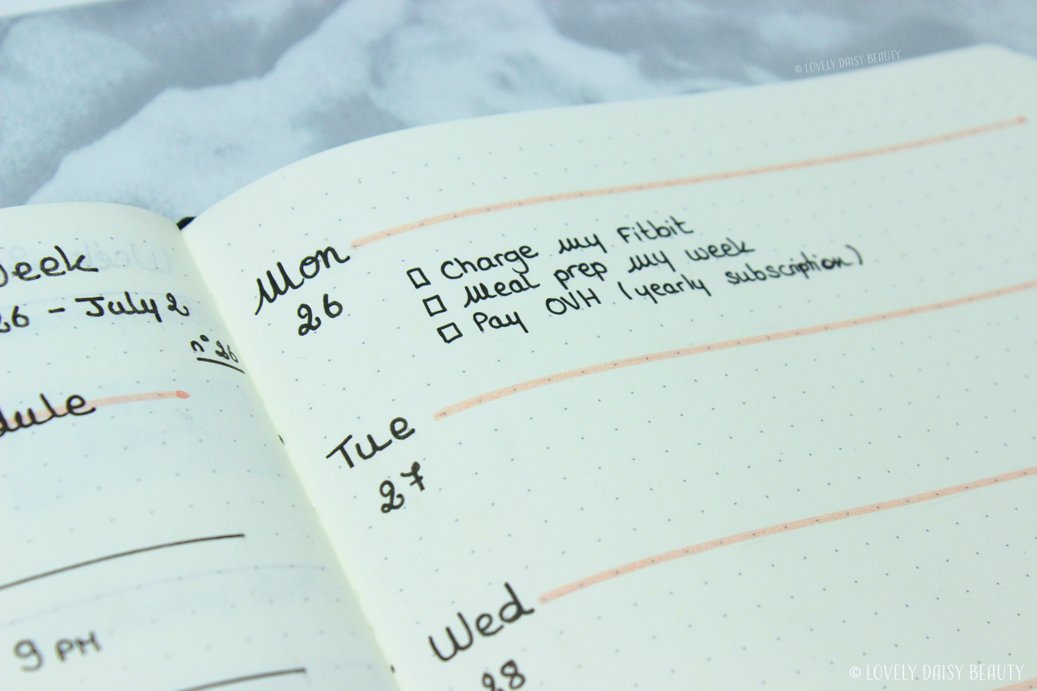 © LOVELY DAISY BEAUTY
Week
26 - July 2
n° 26
9 PM
Mon
26
Charge my Fitbit
Meal prep my week
Pay OVH (yearly subscription)
Tue
27
Wed
28
© LOVELY DAISY BEAUTY